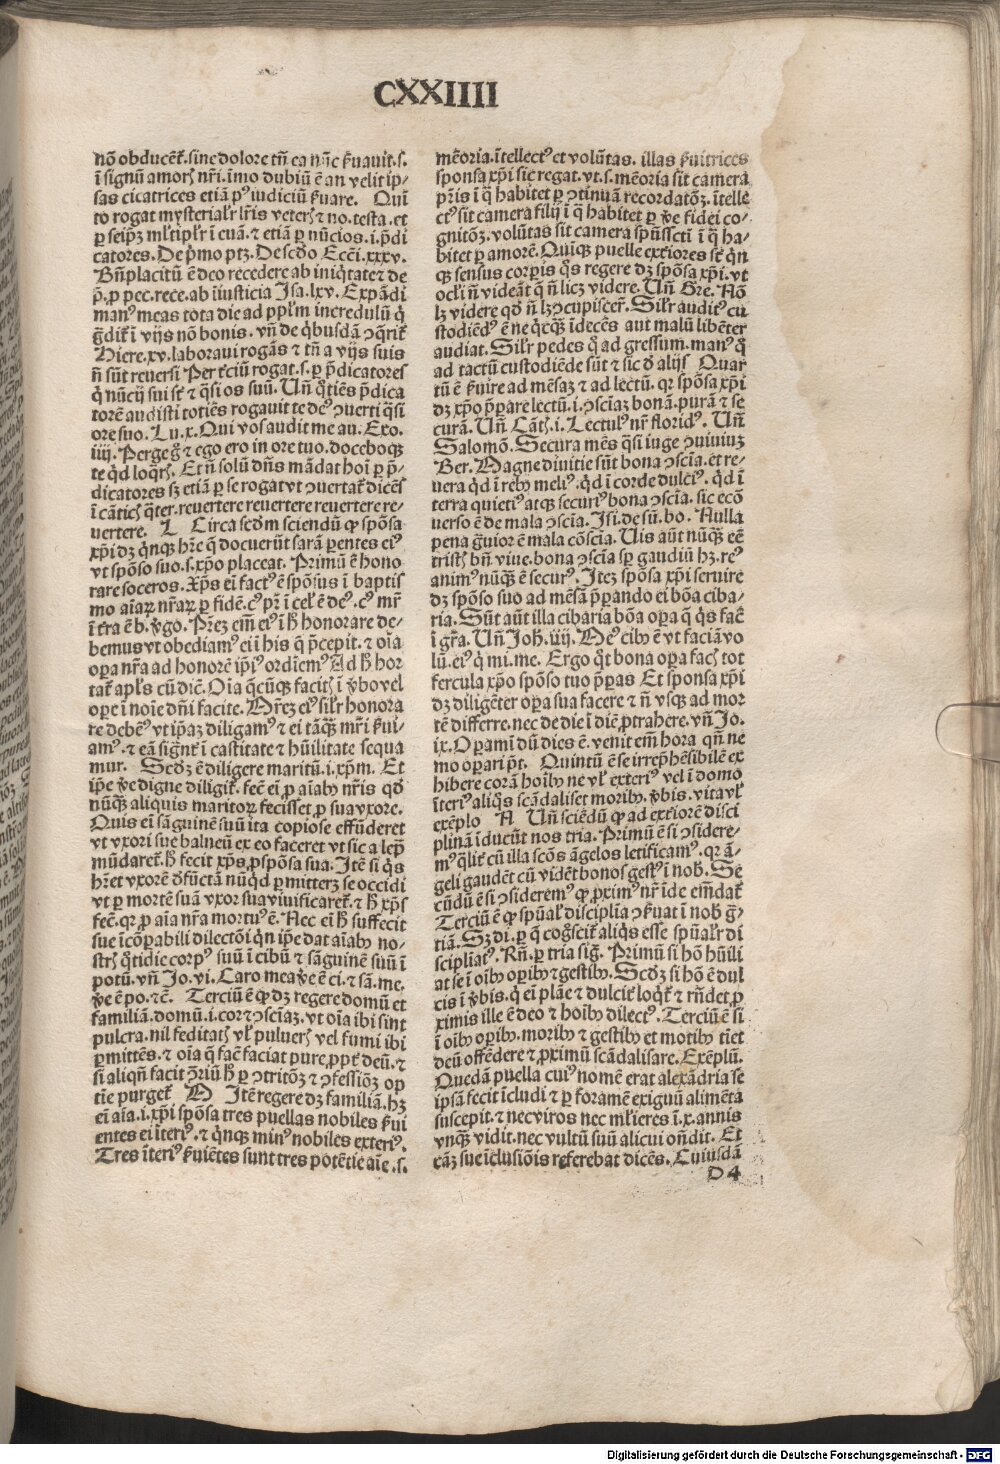 CXXIIII
nō obducēt᷑. sine dolore tn̄ ea nūc ẜuauit. s.
ī signū amorꝭ nr̄i. īmo dubiū ē an velit ip-
sas cicatrices etiā pꝰ iudiciū ẜuare. Quī
to rogat mysterialr̄ lr̄is veterꝭ ⁊ no. testa. et
ꝑ seip̄ꝫ ml̄tiplr̄ ī cuā. ⁊ etiā ꝑ nūcios. i. p̄di
catores. De p̄mo ptꝫ. De scd̄o Ecc̄i. xxxv.
Bn̄placitū ē deo recedere ab iniq̄tate ⁊ de
p̄. ꝓ pec. rece. ab iīusticia Isa. lxv. Expādi
manꝰ meas tota die ad ppl̄m incredulū q̄
ḡdit᷑ ī vijs nō bonis. vn̄ de q̄busdā ꝯq̄rit᷑
Hiere. xv. laboraui rogās ⁊ tn̄ a vijs suis
n̄ sūt reuersi Per terciū rogat. s. ꝑ p̄dicatores
q̄ nūcij sui st̄ ⁊ q̄si os suū. Un̄ q̄tiēs p̄dica
torē audisti totiēs rogauit te deꝰ ꝯuerti q̄si
ore suo. Lu. x. Qui vos audit me au. Exo.
iiij. Perge g̊ ⁊ ego ero in ore tuo. doceboqꝫ
te qd̄ loq̄rꝭ. Et n̄ solū dn̄s mādat hoī ꝑ p̄-
dicatores sꝫ etiā ꝑ se rogat vt ꝯuertat᷑ dicēs
ī cāticꝭ q̄ter. reuertere reuertere reuertere re-
uertere. L Circa scd̄m sciendū ꝙ spōsa
xp̄i dꝫ q̄nqꝫ hr̄e q̄ docuerūt sarā ꝑentes eiꝰ
vt spōso suo. s. xp̄o placeat. Primū ē hono
rare soceros. Xp̄s ei̅ factꝰ ē spōsus ī baptis
mo aīaꝝ nr̄aꝝ ꝑ fidē. cꝰ pr̄ ī cel̄ ē deꝰ. cꝰ mr̄
ī tr̄a ē b. v̄go. Pr̄eꝫ em̄ eiꝰ ī hͦ honorare de-
bemus vt obediamꝰ ei ī his q̄ p̄cepit. ⁊ oīa
opera nr̄a ad honorē ip̄iꝰ ordiēmꝰ Ad hͦ hor
tat᷑ apl̄s cū dic̄. Oīa q̄cūqꝫ facitꝭ ī v̄bo vel
oꝑe ī noīe dn̄i facite. Mr̄eꝫ eiꝰ silr̄ honora
re debeꝰ vt ip̄aꝫ diligamꝰ ⁊ ei tāq̄ꝫ mr̄i ẜui-
amꝰ. ⁊ eā signt᷑ ī castitate ⁊ hūilitate sequa
mur. Scd̄ꝫ ē diligere maritū. i. xp̄m. Et
ip̄e v̄e digne diligit᷑. fec̄ ei̅ ꝓ aīabꝫ nr̄is qd̄
nūq̄ꝫ aliquis maritoꝝ fecisset ꝓ sua vxore.
Quis ei̅ sāguinē suū ita copiose effūderet
vt vxori sue balneū ex eo faceret vt sic a lep̄
mūdaret᷑. hͦ fecit xp̄s ꝓ spōsa sua. Itē si q̄s
hr̄et vxorē d̓fūctā nūq̄d ꝑmitterꝫ se occidi
vt ꝑ mortē suā vxor sua viuificaret᷑. ⁊ hͦ xp̄s
fec̄. qꝛ ꝓ aīa nr̄a mortuꝰ ē. Nec ei̅ hͦ suffecit
sue īcōꝑabili dilectōi q̄n ip̄e dat aīabꝫ no-
strꝭ q̄tidie corpꝰ suū ī cibū ⁊ sāguinē suū ī
potū. vn̄ Jo. vi. Caro mea v̄e ē ci. ⁊ sā. me.
v̄e ē po. ⁊c̄. Terciū ē ꝙ dꝫ regere domū et
familiā. domū. i. cor ⁊ ꝯsciaꝫ. vt oīa ibi sint
pulcra. nil feditatꝭ vl̄ puluerꝭ vel fumi ibi
ꝑmittēs. ⁊ oīa q̄ fac̄ faciat pure ꝓpt̓ deū. ⁊
si aliqn̄ facit ꝯr̄iū hͦ ꝑ ꝯtritōꝫ ⁊ ꝯfessiōꝫ op
tīe purget᷑ M Itē regere dꝫ familiā. hꝫ
ei̅ aīa. i. xp̄i spōsa tres puellas nobiles ẜui
entes ei īteriꝰ. ⁊ q̄nqꝫ minꝰ nobiles exteriꝰ.
Tres īteriꝰ ẜuiētes sunt tres potētie aīe. s.
mēoria. ītellectꝰ et volūtas. illas ẜuitrices
sponsa xp̄i sic regat. vt. s. mēoria sit camera
pr̄is ī q̄ habitet ꝑ ꝯtinuā recordatōꝫ. ītelle
ctꝰ sit camera filij ī q̄ habitet ꝑ v̄e fidei co-
gnitōꝫ. volūtas sit camera sp̄ūssct̄i ī q̄ ha-
bitet ꝑ amorē. Quīqꝫ puelle exteriores st̄ q̄n
qꝫ sensus corꝑis q̄s regere dꝫ spōsa xp̄i. vt
ocl̄i n̄ videāt q̄ n̄ licꝫ videre. Un̄ Gre. Nō
lꝫ videre qd̄ n̄ lꝫ ꝯcupiscer̄. Silr̄ auditꝰ cu
stodiēdꝰ ē ne q̄cq̄ꝫ īdecēs aut malū libēter
audiat. Silr̄ pedes q̄ ad gressum. manꝰ q̄
ad tactū custodiēde sūt ⁊ sic d̓ alijs Quar
tū ē ẜuire ad mēsaꝫ ⁊ ad lectū. qꝛ spōsa xp̄i
dꝫ xp̄o p̄ꝑare lectū. i. ꝯsciaꝫ bonā. purā ⁊ se
curā. Un̄ Cātꝭ. i. Lectulꝰ nr̄ floridꝰ. Un̄
Salomō. Secura mēs q̄si iuge ꝯuiuiuꝫ
Ber. Magne diuitie sūt bona ꝯscīa. et re-
uera qd̄ ī rebꝫ meliꝰ. qd̄ ī corde dulciꝰ. qd̄ ī
terra quietiꝰ atqꝫ securiꝰ bona ꝯscīa. sic ecō
uerso ē de mala ꝯscīa. Isi. de sū. bo. Nulla
pena g̊uior ē mala cōscīa. Uis aūt nūq̄ꝫ eē
tristꝭ bn̄ viue. bona ꝯscīa sꝑ gaudiū hꝫ. reꝰ
animꝰ nūq̄ꝫ ē securꝰ. Iteꝫ spōsa xp̄i seruire
dꝫ spōso suo ad mēsā p̄ꝑando ei bōa ciba-
ria. Sūt aūt illa cibaria bōa oꝑa q̄ q̄s fac̄
ī gr̄a. Un̄ Joh̄. iiij. Meꝰ cibꝫ ē vt faciā vo
lū. eiꝰ q̄ mi. me. Ergo q̄t bona oꝑa facꝭ tot
fercula xp̄o spōso tuo p̄ꝑas Et sponsa xp̄i
dꝫ diligēter oꝑa sua facere ⁊ n̄ vsqꝫ ad mor
tē differre. nec de die ī diē ꝓtrahere. vn̄ Jo.
ix. Oꝑamī dū dies ē. venit em̄ hora qn̄ ne
mo oꝑari pt̄. Quintū ē se irrep̄hēsibilē ex
hibere corā hoībꝫ ne vl̄ exteriꝰ vel ī domo
īteriꝰ aliq̄s scādaliset moribꝫ. v̄bis. vita vl̄
exēplo N Un̄ sciēdū ꝙ ad exteriorē disci
plinā īducūt nos tria. Primū ē si ꝯsidere-
mꝰ q̄lit᷑ cū illa scōs āgelos letificamꝰ. qꝛ ā-
geli gaudēt cū vidēt bonos gestꝰ ī nob̄. Se
cūdū ē si ꝯsideremꝰ ꝙ ꝓximꝰ nr̄ īde emēdat᷑
Terciū ē ꝙ sp̄ual̄ disciplīa ꝯẜuat ī nob̄ gr̄-
tiā. Sꝫ di. ꝑ q̄ cogscit᷑ aliq̄s esse sp̄ualr̄ di
sciplīatꝰ. Rn̄. ꝑ tria siḡ. Primū si hō hūili
at se ī oībꝫ oꝑibꝫ ⁊ gestibꝫ. Scd̄ꝫ si hō ē dul
cis ī v̄bis. q̄ ei̅ plāe ⁊ dulcit᷑ loq̄t᷑ ⁊ rn̄det ꝓ
ximis ille ē deo ⁊ hoībꝫ dilectꝰ. Terciū ē si
ī oībꝫ oꝑibꝫ. moribꝫ ⁊ gestibꝫ et motibꝫ tīet
deū offēdere ⁊ ꝓximū scādalisare. Exēplū.
Quedā puella cuiꝰ nomē erat alexādria se
ipsā fecit īcludi ⁊ ꝑ foramē exiguū alimēta
suscepit. ⁊ nec viros nec ml̄ieres ī. x. annis
vnq̄ꝫ vidit. nec vultū suū alicui on̄dit. Et
cāꝫ sue īclusiōis referebat dicēs. Cuiusdā
D4
Digitalisierung gefördert durch die Deutsche Forschungsgemeinschaft - DFG